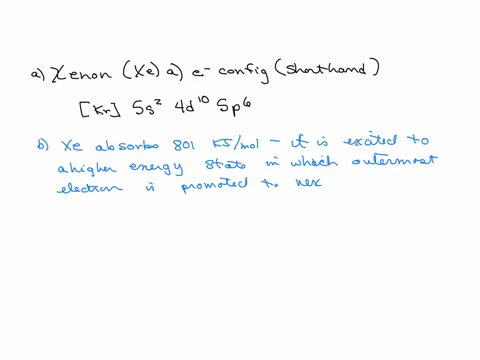 a) Xenon (Xe) a) e⁻ config (shorthand)
[Kr] 5s² 4d¹⁰ 5p⁶
b) Xe absorbs 801 KJ/mol - it is excited to
a higher energy state in which outermost
electron is promoted to nex